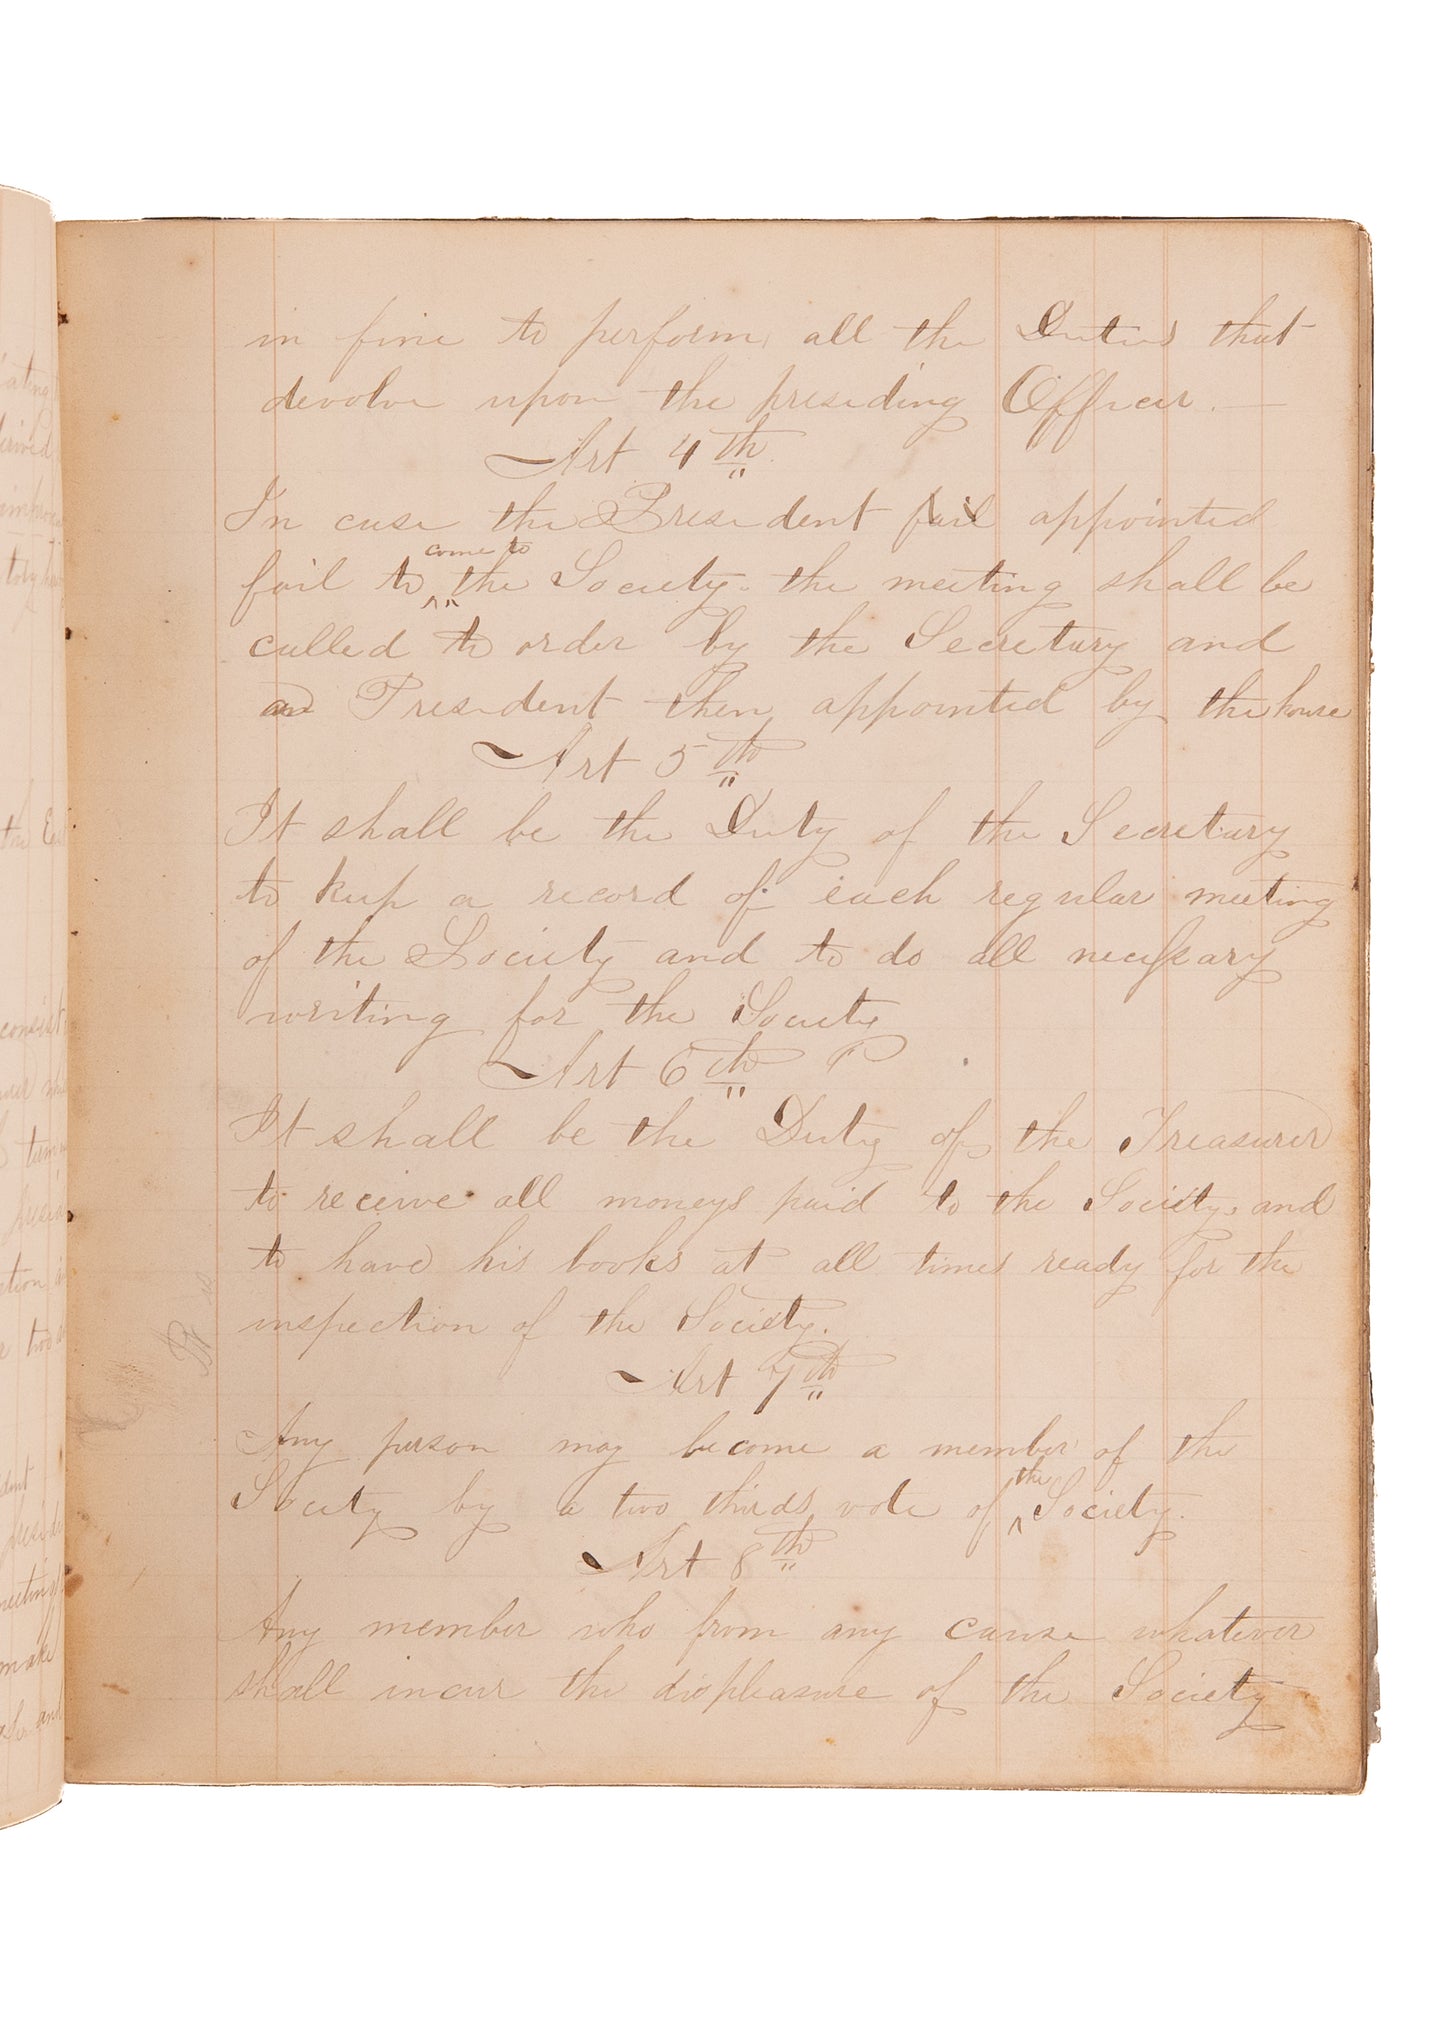 in fine to perform all the Duties that
devolve upon the presiding Officer.
Art 4th
In case the President fail appointed
fail to come to the Society. the meeting shall be
called to order by the Secretary and
a President then appointed by the house
Art 5th
It shall be the Duty of the Secretary
to keep a record of each regular meeting
of the Society and to do all necessary
writing for the Society
Art 6th
It shall be the Duty of the Treasurer
to receive all moneys paid to the Society, and
to have his books at all times ready for the
inspection of the Society.
Art 7th
Any person may become a member of the
Society by a two thirds vote of the Society.
Art 8th
Any member who from any cause whatever
shall incur the displeasure of the Society